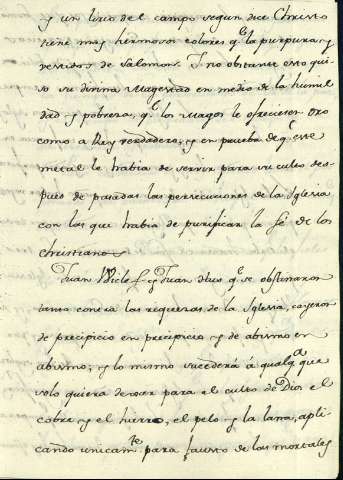 y un lirio del campo segun dice Christo
tiene mas hermosos colores qe la purpura y
vestidos de Salomon. Y no obstante esto qui-
so su divina Magestad en medio de la humil
dad y pobreza, qe los Magos le ofreciesen oro
como a Rey verdadero, y en prueba de qe este
metal le habia de servir para su culto des-
pues de pasadas las persecuciones de la Iglesia
con las que habia de purificar la fé de los
christianos
Juan y Juan Hus qe se obstinaron
tanto contra las riquezas de la Iglesia, cayeron
de precipicio en precipicio y de abismo en
abismo; y lo mismo sucederá á qualqa que
solo quiera dexar para el culto de Dios el
cobre y el hierro, el pelo y la lana, apli
cando unicamte para fausto de los mortales